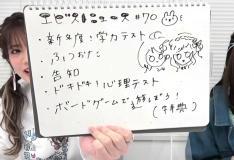 エビスジュース #70
・新年度!学力テスト
・ふつおた
・告知
・ドキドキ!心理テスト
・ボードゲームで遊ぼう!
(特典)